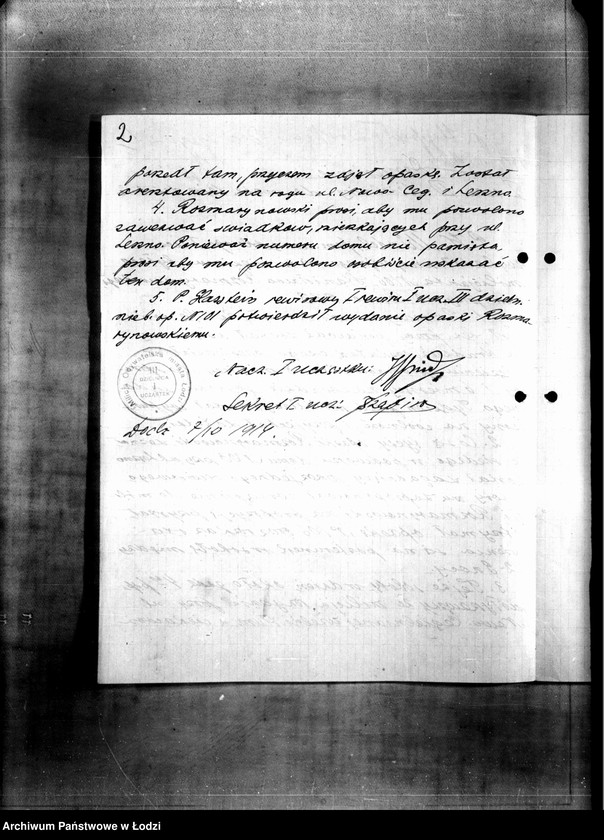 2
poszedł tam, przyczem zdjął opaskę. Został
aresztowany na rogu ul. Nowo Ceg. i Leszno.
4. Rozmarynowski prosi, aby mu pozwolono
zawezwać świadków, mieszkających przy ul.
Leszno. Ponieważ numeru domu nie pamięta,
prosi aby mu pozwolono osobiście wskazać
ten dom.
5. P. rewirowy I rewiru I ucz. III dzieln.
nieb. op. potwierdził wydanie opaski Rozma-
rynowskiemu.
Nacz. I
Sekret I ucz:
Łódź 7/10 1914.
Milicja Obywatelska miasta Łodzi
III
DZIELNICA
I
UCZĄSTEK
Archiwum Państwowe w Łodzi